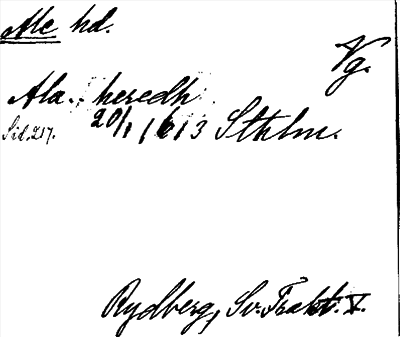 Ale hd.
Vg.
Ala heredh
Sid. 217. 20/1 1613 Sthlm.
Rydberg, Sv. Trakt. V.